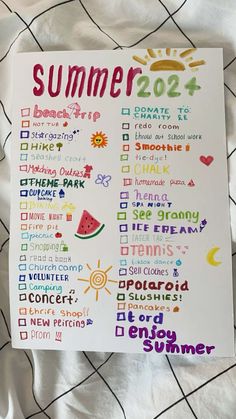 SUMMER 2024
beach trip
HOT TUB
Stargazing
Hike
Seashell craft
Matching Outfits
THEME PARK
CUPCAKE
BAKING
BIKING
MOVIE NIGHT
Fire pit
picnic
Shopping
read a book
Church camp
VOLUNTEER
Camping
concert
thrift Shop
NEW Peircing
prom
DONATE TO
CHARITY
redo room
throw out School work
Smoothie
tie-dye!
CHALK
homemade pizza
henna
SPA NIGHT
See granny
ICE CREAM
TENNIS
tiktok dance
Sell Clothes
polaroid
SLUSHIES!
pancakes
enjoy
Summer